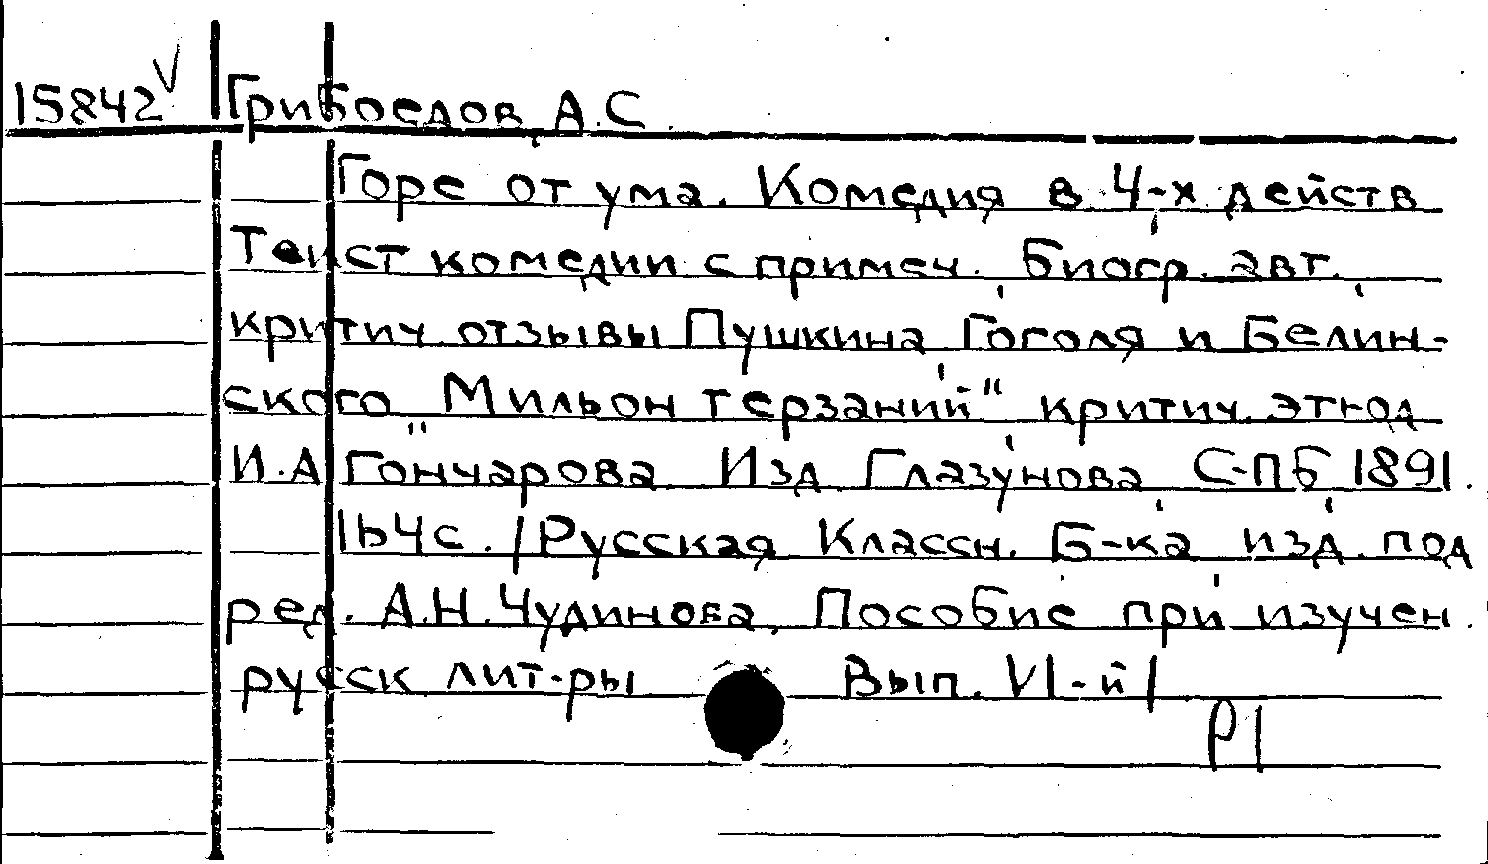 15842 V Грибоедов, А.С.
Горе от ума. Комедия в 4-х действ.
Текст комедии с примеч., Биогр. авт.,
критич. отзывы Пушкина, Гоголя и Белин-
ского, "Мильон терзаний" критич. этюд
И.А. Гончарова. Изд. Глазунова, С-ПБ, 1891.
164с. /Русская Классн. Б-ка изд. под
ред. А.Н. Чудинова, Пособие при изучен.
русск. лит-ры Вып. VI-й/
Р1